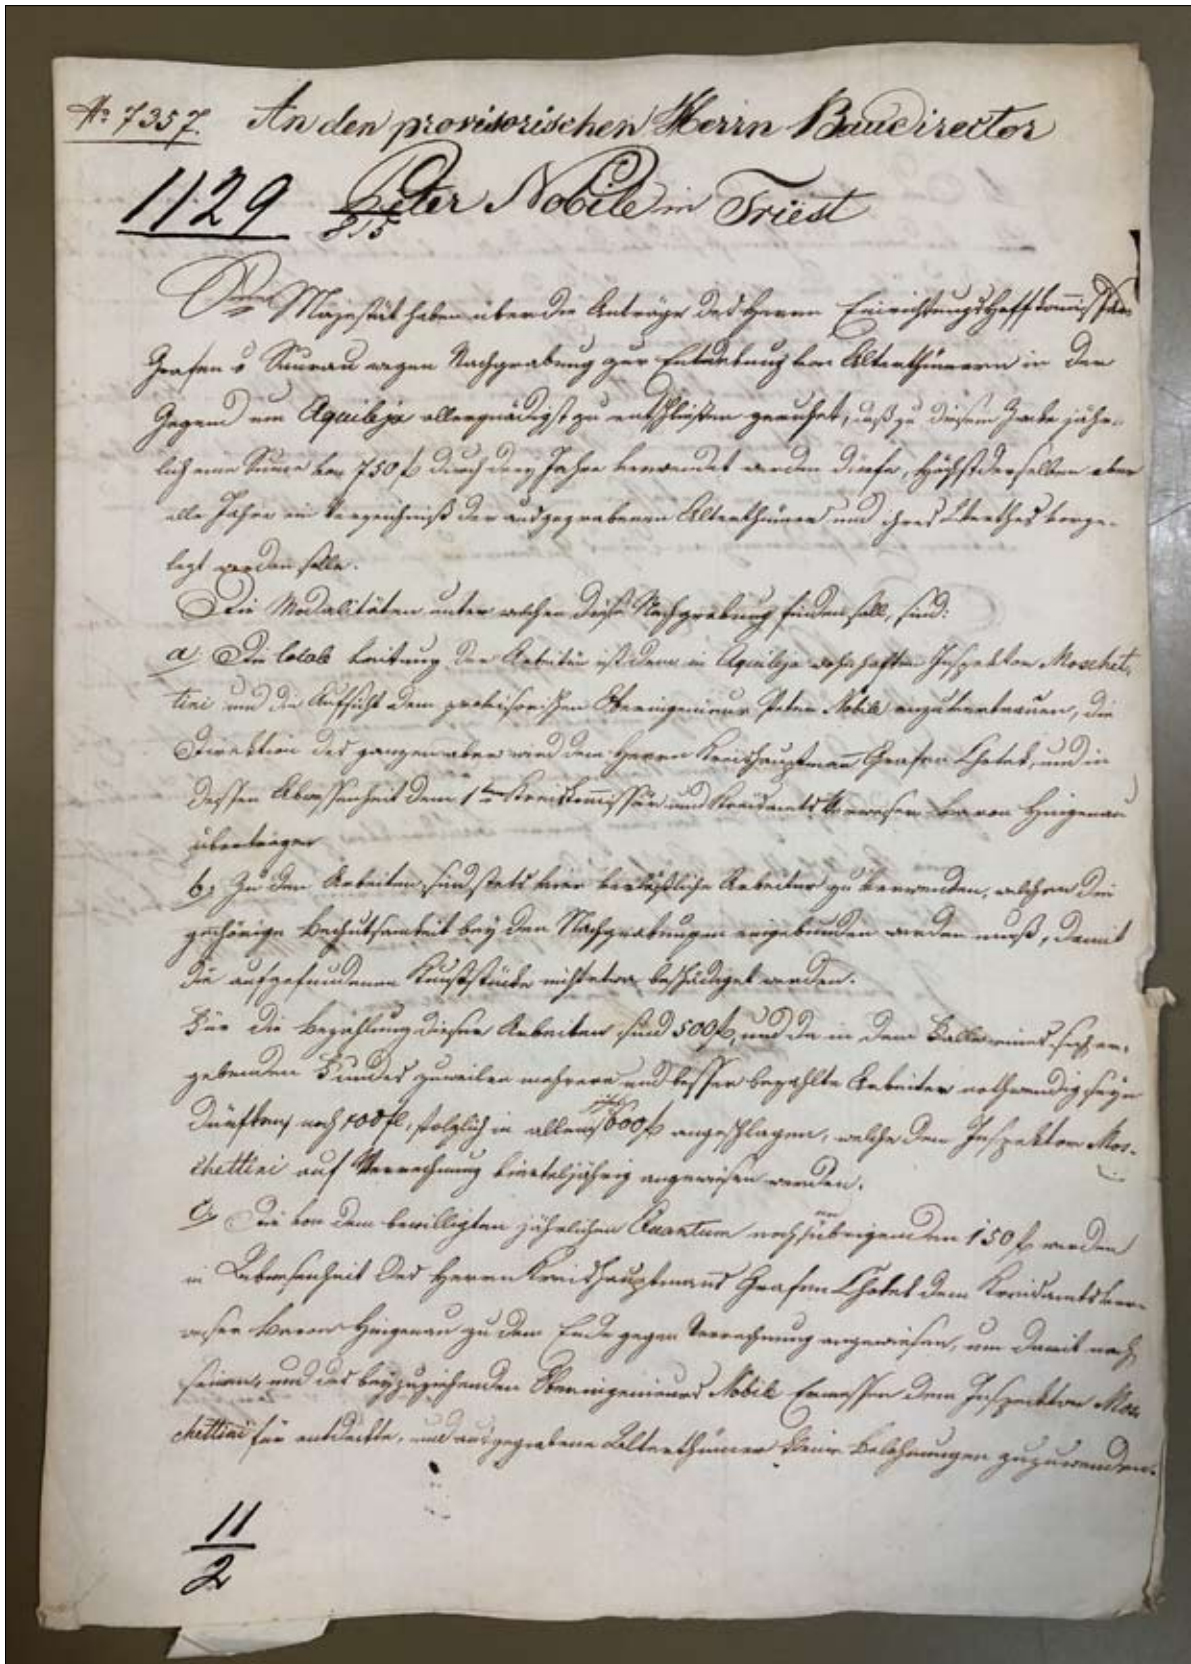 N: 7357. An den provisorischen Herrn Baudirector
1129 Peter Nobile in Triest
815
Seine Majestät haben über die Anträge des Herrn Einrichtungs Hofkommissär
Grafen v Saurau wegen Nachgrabung zur Entdekung von Alterthümern in der
Gegend um Aquileja allergnädigst zu entschließen geruhet, daß zu diesem Zweke jähr-
lich eine Summe von 750 f durch drey Jahre verwendet werden dürfe, Höchstderselben aber
alle Jahre ein Verzeichniß der ausgegrabenen Alterthümer und ihres Werthes vorge-
legt werden solle.
Die Modalitäten unter welchen diese Nachgrabung finden soll, sind:
a Die locale Leitung der Arbeiten ist dem in Aquileja wohnhaften Inspektor Moschet-
tini und die Aufsicht dem provisorischen Oberingenieur Peter Nobile anzuvertrauen, die
Direktion des ganzen aber wird dem Herrn Kreishauptmann Grafen Chotek, und in
dessen Abwesenheit dem 1ten Kreiskommissär und Kreisamts Verweser Baron Hingenau
übertragen
b, Zu den Arbeiten sind stets vier verläßliche Arbeiter zu verwenden, welchen die
gehörige Behutsamkeit bey den Nachgrabungen eingebunden werden muß, damit
die aufgefundenen Kunststüke nicht etwa beschädiget werden.
Für die Bezahlung dieser Arbeiten sind 500 f, und da in dem Falle eines sich er-
gebenden Fundes zuweilen mehrere und besser bezahlte Arbeiter nothwendig seyn
dürften, noch 100 fl, folglich in allem 600 f angeschlagen, welche dem Inspektor Mos-
chettini auf Verrechnung vierteljährig angewiesen werden.
c, Die von dem bewilligten jährlichen Quantum noch übrigenden 150 f werden
in Abwesenheit des Herrn Kreishauptmanns Grafen Chotek dem Kreisamtsver-
weser Baron Hingenau zu dem Ende gegen Verrechnung angewiesen, um damit nach
seinem, und des beyzuziehenden Oberingenieurs Nobile Ermessen dem Inspektor Mos-
chettini für entdekte, und ausgegrabene Alterthümer kleine Belohnungen zuzuwenden.
11
2